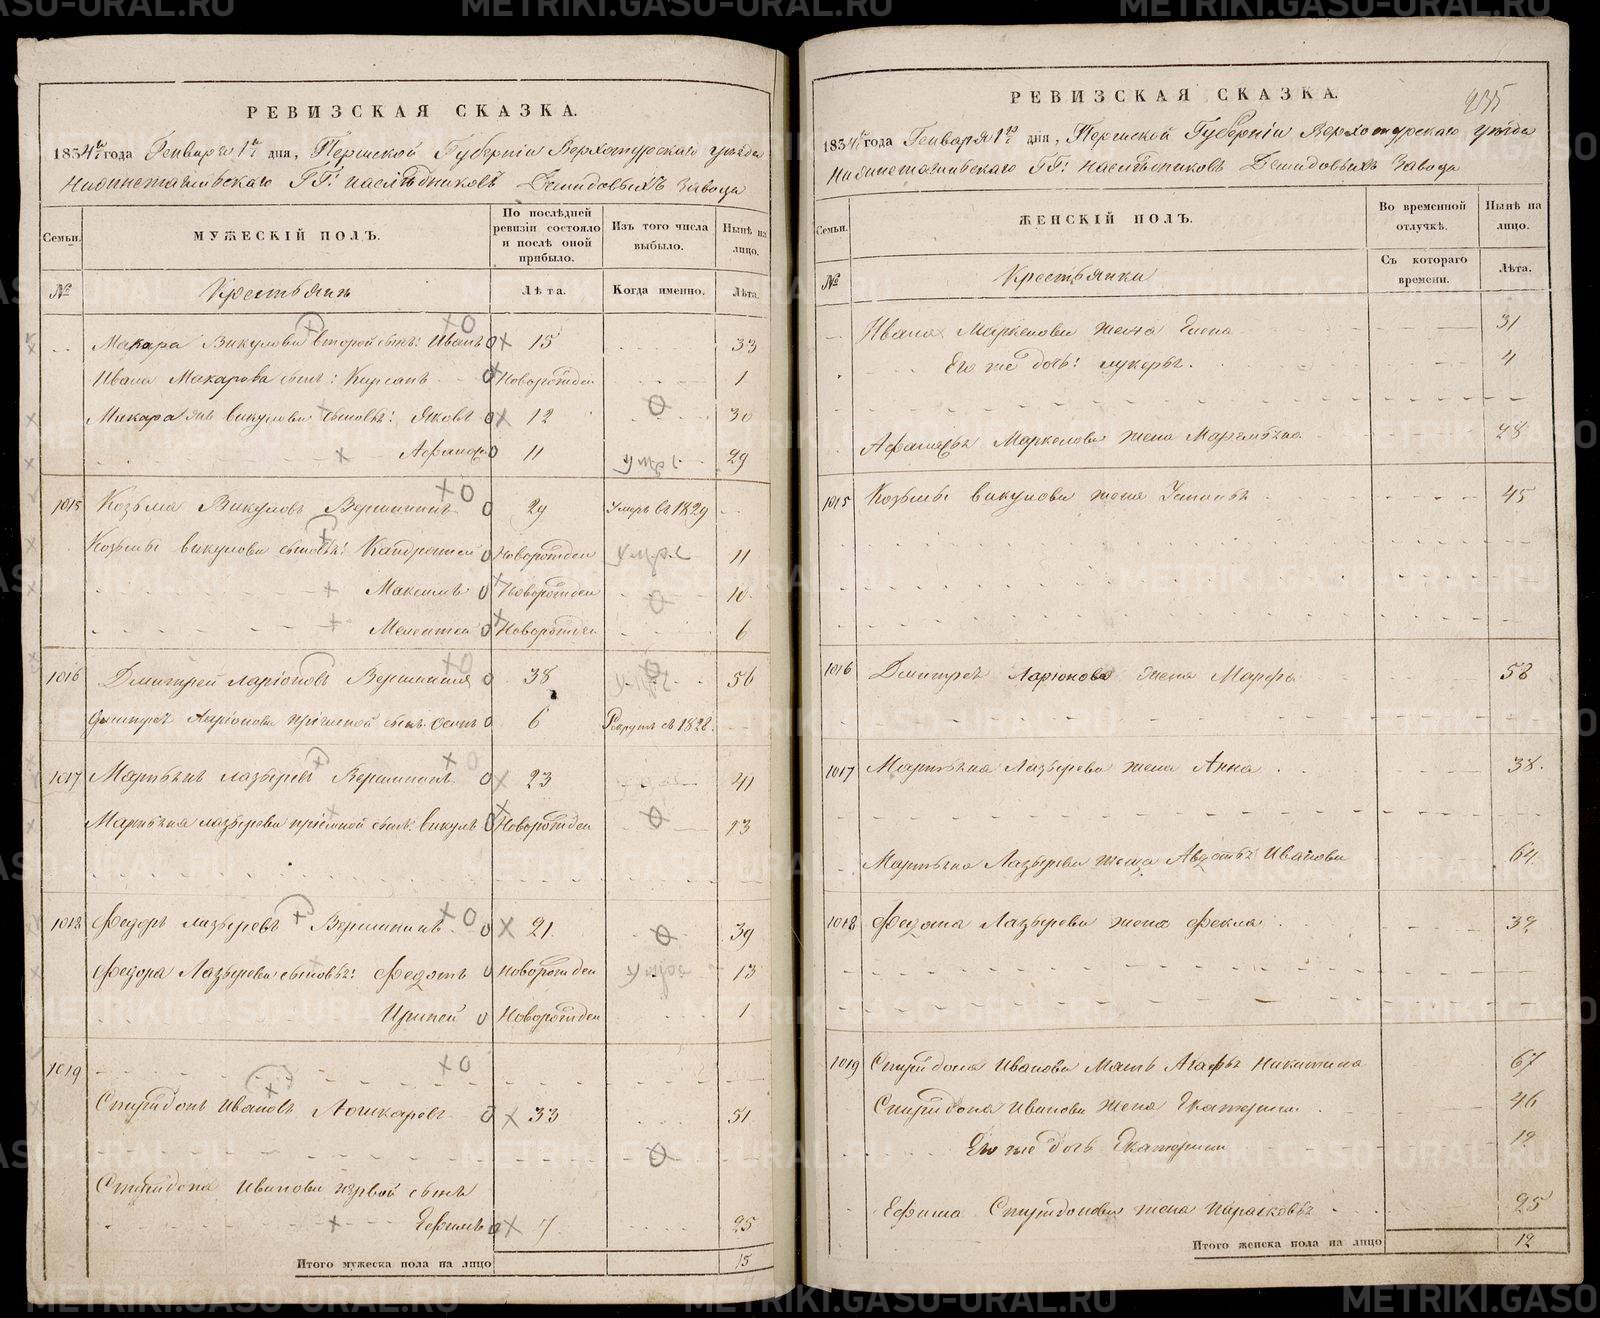 РЕВИЗСКАЯ СКАЗКА.
1834го года Генваря 1го дня, Пермской Губерніи Верхотурскаго уѣзда
Нижнетагильскаго ГГ: наслѣдниковъ Демидовыхъ Завода
Семьи.
МУЖЕСКІЙ ПОЛЪ.
По послѣдней ревизіи состояло и послѣ оной прибыло.
Изъ того числа выбыло.
Нынѣ на лицо.
№
Крестьянъ
Лѣта.
Когда именно.
Лѣта.
Макара Викулова второй сынъ: Иванъ 15 33
Ивана Макарова сынъ: Новорожден 1
Макара Викулова сыновья: Яковъ 12 30
11 29
1015 Козьма Викуловъ Вершининъ 29 Умеръ въ 1829
Козьмы Викулова сыновья: Новорожден 11
Максимъ Новорожден 10
Мелентей Новорожден 6
1016 Дмитрей Ларіоновъ Вершининъ 38 56
Дмитрея Ларіонова пріемной сынъ Осипъ 6 Рекрутъ съ 1828
1017 Мартынъ Лазаревъ Вершининъ 23 41
Мартына Лазарева пріемной сынъ Викулъ Новорожден 13
1018 Федоръ Лазаревъ Вершининъ 21 39
Федора Лазарева сыновья: Новорожден 13
Новорожден 1
1019
Спиридонъ Ивановъ 33 51
Спиридона Иванова первой сынъ
Ефимъ 7 25
Итого мужеска пола на лицо 15
РЕВИЗСКАЯ СКАЗКА.
235
1834го года Генваря 1го дня, Пермской Губерніи Верхотурскаго уѣзда
Нижнетагильскаго ГГ: наслѣдниковъ Демидовыхъ Завода
Семьи.
ЖЕНСКІЙ ПОЛЪ.
Во временной отлучкѣ.
Нынѣ на лицо.
№
Крестьянки
Съ котораго времени.
Лѣта.
Ивана жена Елена 31
Его же дочь: 4
жена 28
1015 Козьмы Викулова жена 45
1016 Дмитрея Ларіонова жена Марфа 58
1017 Мартына Лазарева жена Анна 38
Мартына Лазарева Иванова 64
1018 Лазарева жена Фекла 39
1019 Спиридона Иванова Мать Агафья Никитина 67
Спиридона Иванова жена Екатерина 46
Его же дочь Екатерина 12
Ефима Спиридонова жена Парасковья 25
Итого женска пола на лицо 12
METRIKI.GASO-URAL.RU